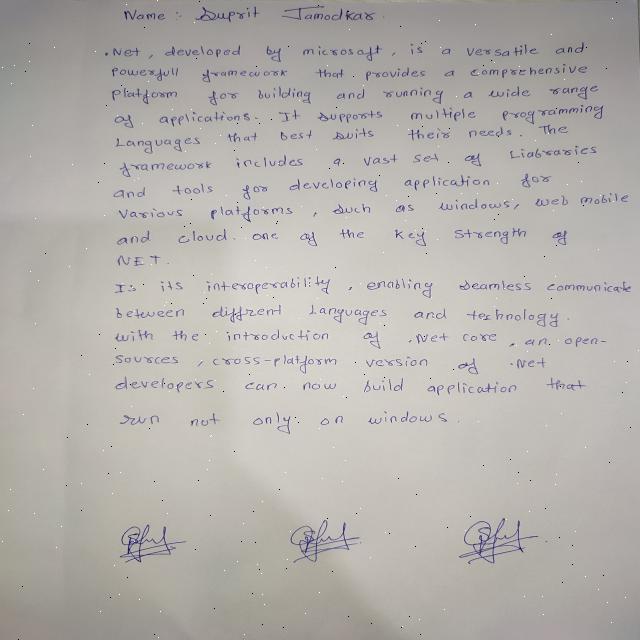 Name : Suprit Jamodkar.
.Net, developed by microsoft, is a versatile and
Powerfull framework that provides a comprehensive
Platform for building and running a wide range
of applications. It supports multiple programming
Languages that best suits their needs. The
framework includes a vast set of Liabraries
and tools for developing application for
various platforms, such as windows, web mobile
and cloud. one of the key strength of
NET.
Is its interoperability, enabling seamless communicate
between diffrent languages and technology.
with the introduction of .Net core, an open-
sources, cross-platform version of .Net
developers can now build application that
run not only on windows.